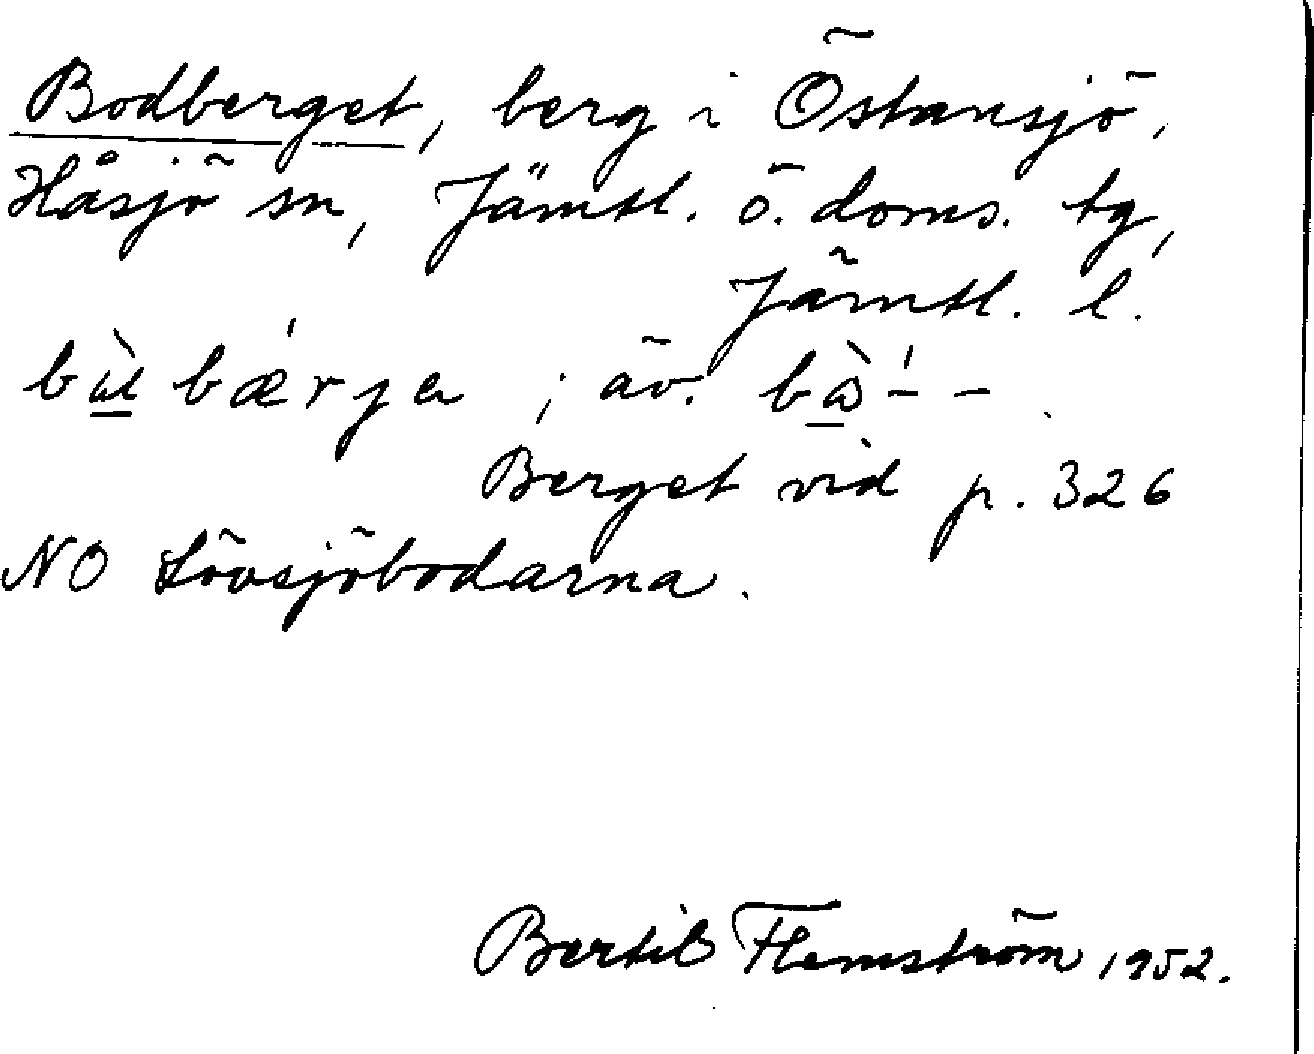 Bodberget, berg i Östansjö,
Håsjö sn, Jämtl. ö. doms. tg,
Jämtl. l.
bærja ; äv.
Berget vid p. 326
NO Lövsjöbodarna.
Bertil Flemström 1952.